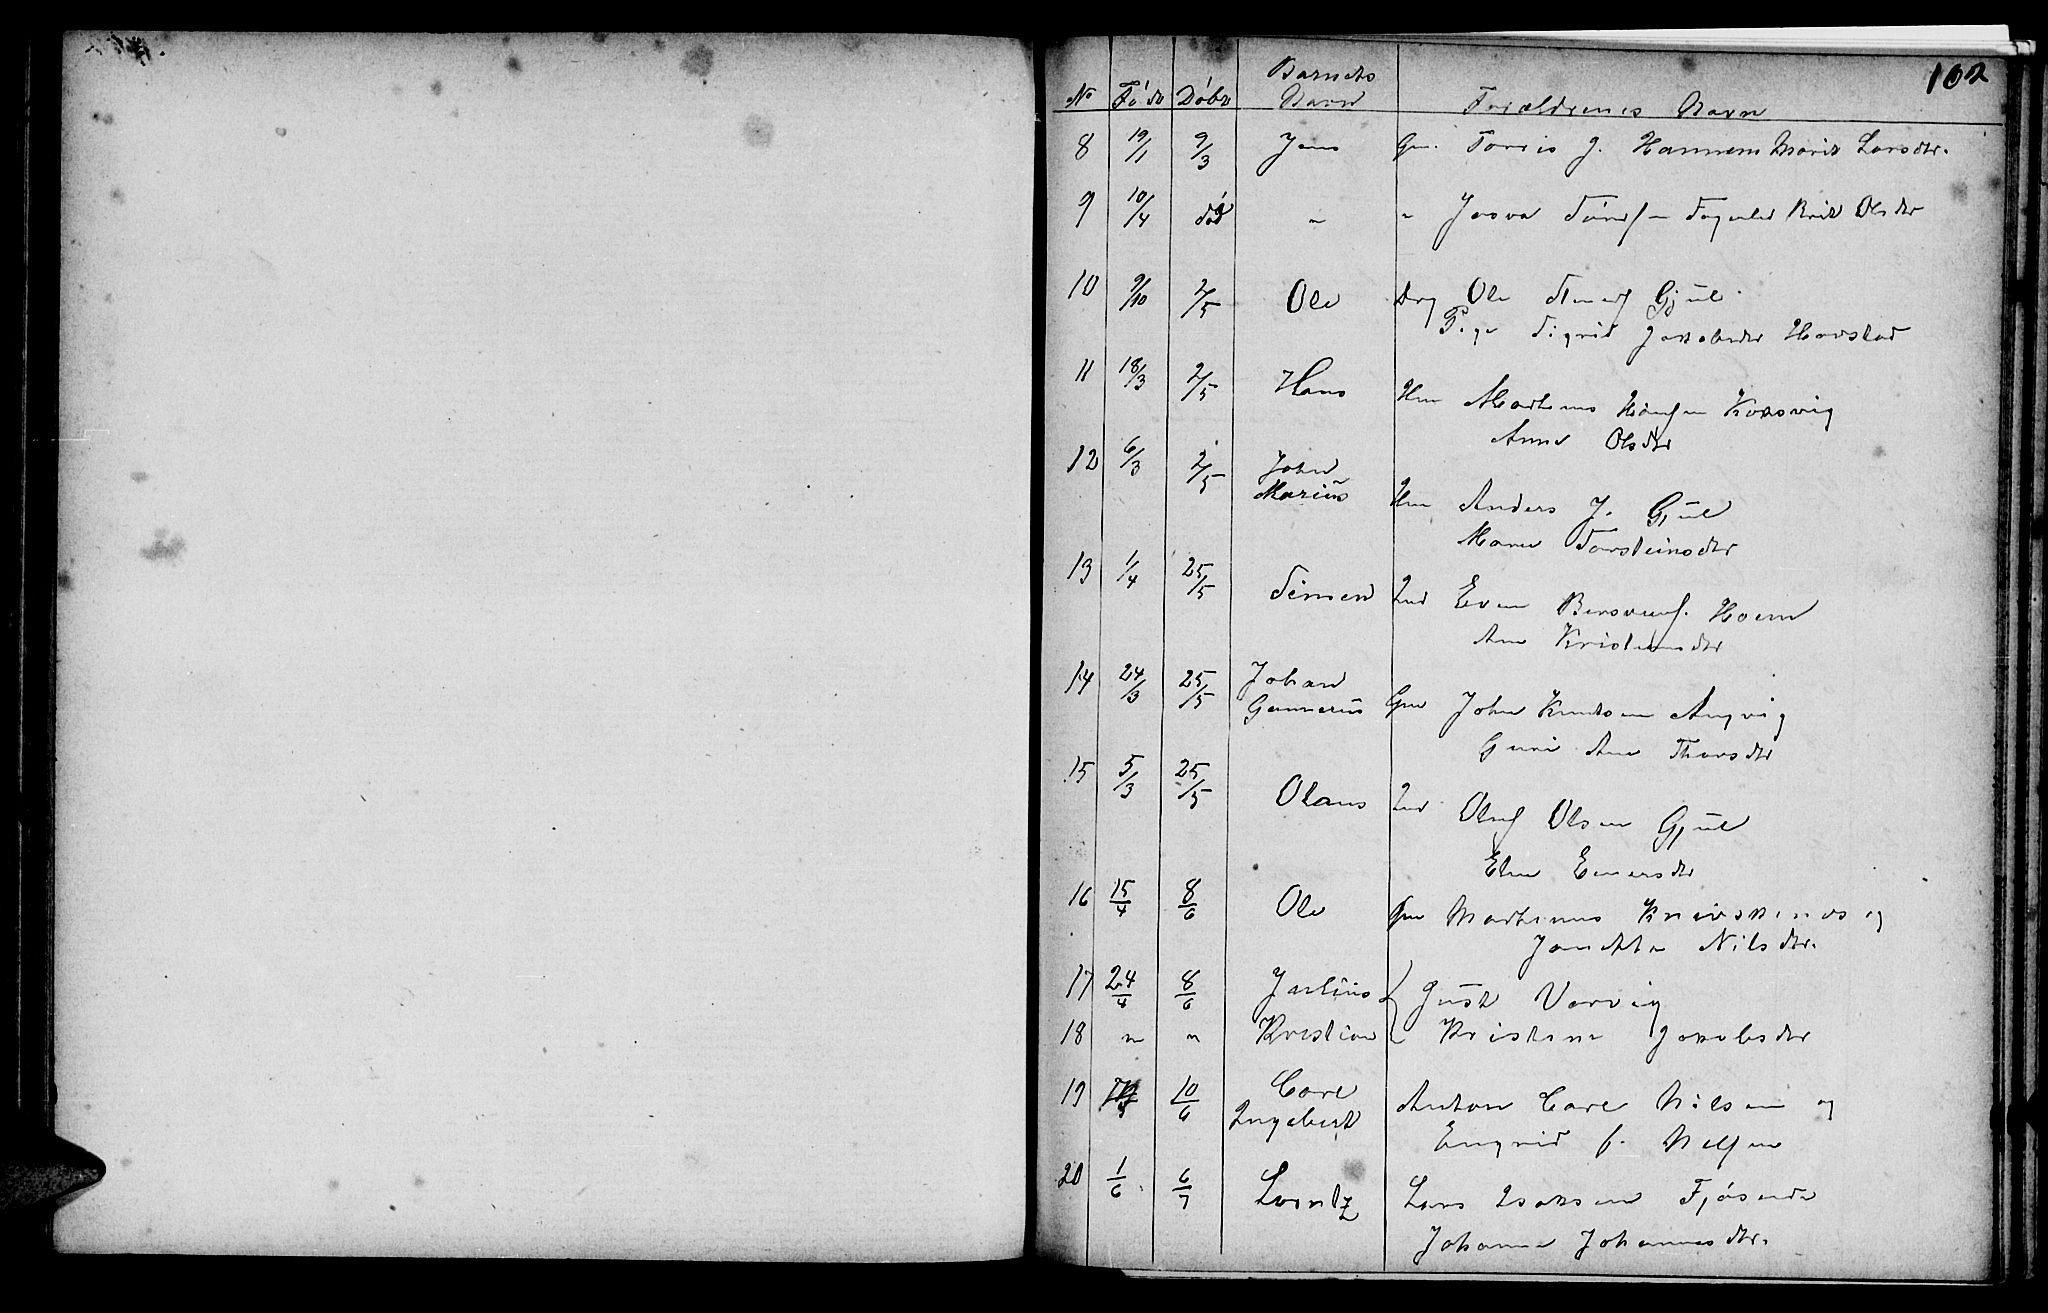 102
No Fød Døbt Barnets Navn Forældrenes Navn
8 19/1 9/3 Jens Gm. Torris J. Hannem Marit Larsdtr.
9 10/4 død " " Fagerlid Brit Olsdtr
10 9/10 2/5 Ole Drg Ole Gjül
Pige Sigrid Jakobsdtr Hovstad
11 18/3 2/5 Hans Hm Martinus Korsvig
Anne Olsdtr
12 6/3 2/5 John
Mariüs Hm Anders J. Gjül
Maren Torsteinsdtr
13 1/4 25/5 Simen Ind Even Hoem
Ane Kristensdtr
14 24/3 25/5 Johan
Gunnerius Gm John Knutsen Angvig
Guri Ane Thorsdtr
15 5/3 25/5 Olaus Ind Oluf Olsen Gjül
Elen Einersdtr
16 15/4 8/6 Ole Gm Martinus og
Nilsdtr.
17 24/4 8/6 Güst Vorvig
18 " " Kristian Kristine Jakobsdtr
19 10/6 Carl
Ingebert Anton Carl Nilsen og
Engrid f. Nilsen
20 1/6 6/7 Lorntz Lars Isaksen
Johanne Johannesdtr.